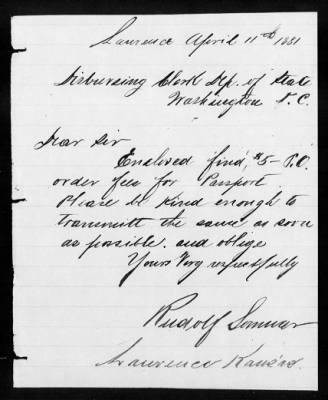 Lawrence April 11th 1881
Disbursing Clerk Dep. of State
Washington D.C.
Dear Sir
Enclosed find, $5– P.O.
order fee for Passport
Please be kind enough to
transmitt the same as soon
as possible. and oblige
Yours Very respectfully
Rudolf
Lawrence Kansas.